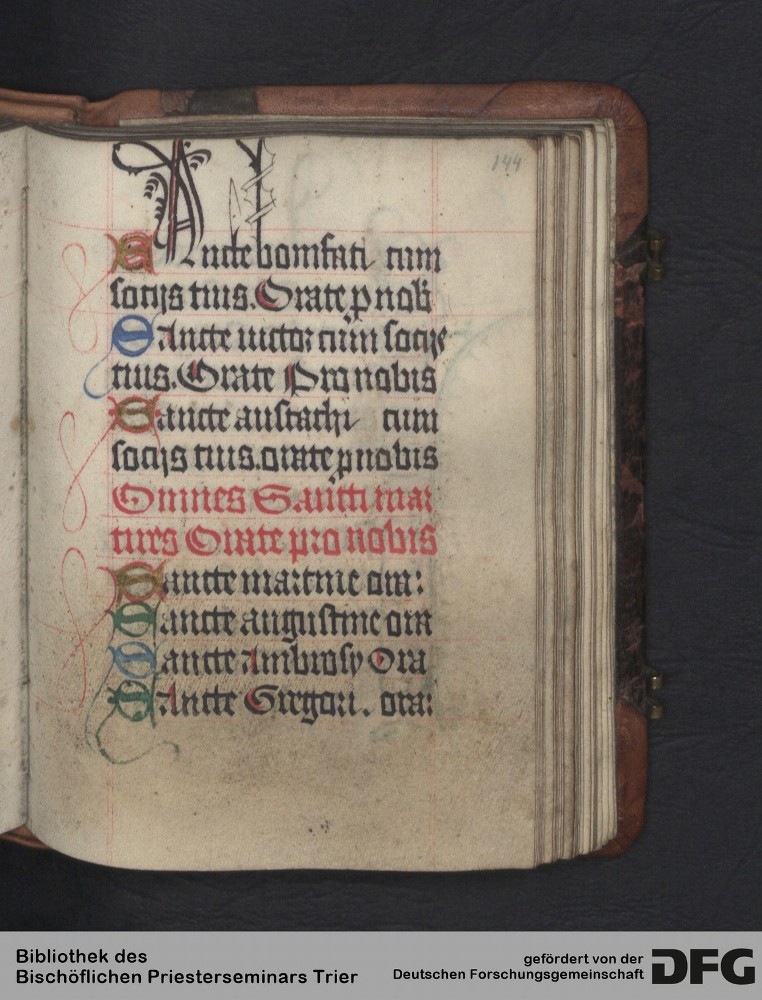 144
SAncte bonifati cum
socijs tuis. Orate p nob
Sancte uictor cum socijs
tuis. Orate Pro nobis
Sancte austachi cum
socijs tuis. orate p nobis
Omnes Sancti mar
tires Orate pro nobis
Sancte martine ora:
Sancte augustine ora
Sancte Ambrosy Ora
SAncte Gregori. ora:
Bibliothek des
Bischöflichen Priesterseminars Trier
gefördert von der
Deutschen Forschungsgemeinschaft
DFG